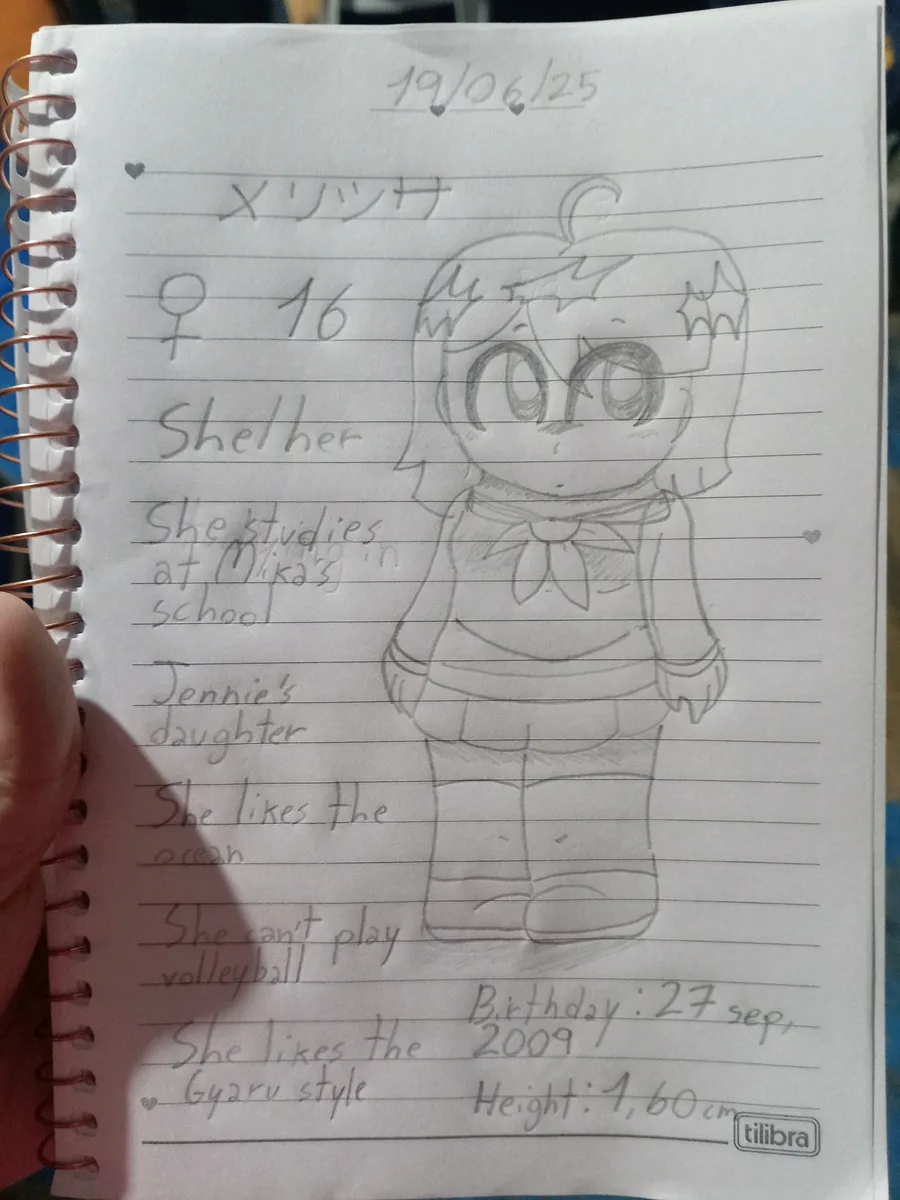 19/06/25
メリッサ
♀ 16
She/her
She studies
at Mika's
school
Jennie's
daughter
She likes the
ocean
She can't play
volleyball
She likes the
Gyaru style
Birthday: 27 sep,
2009
Height: 1,60 cm
tilibra